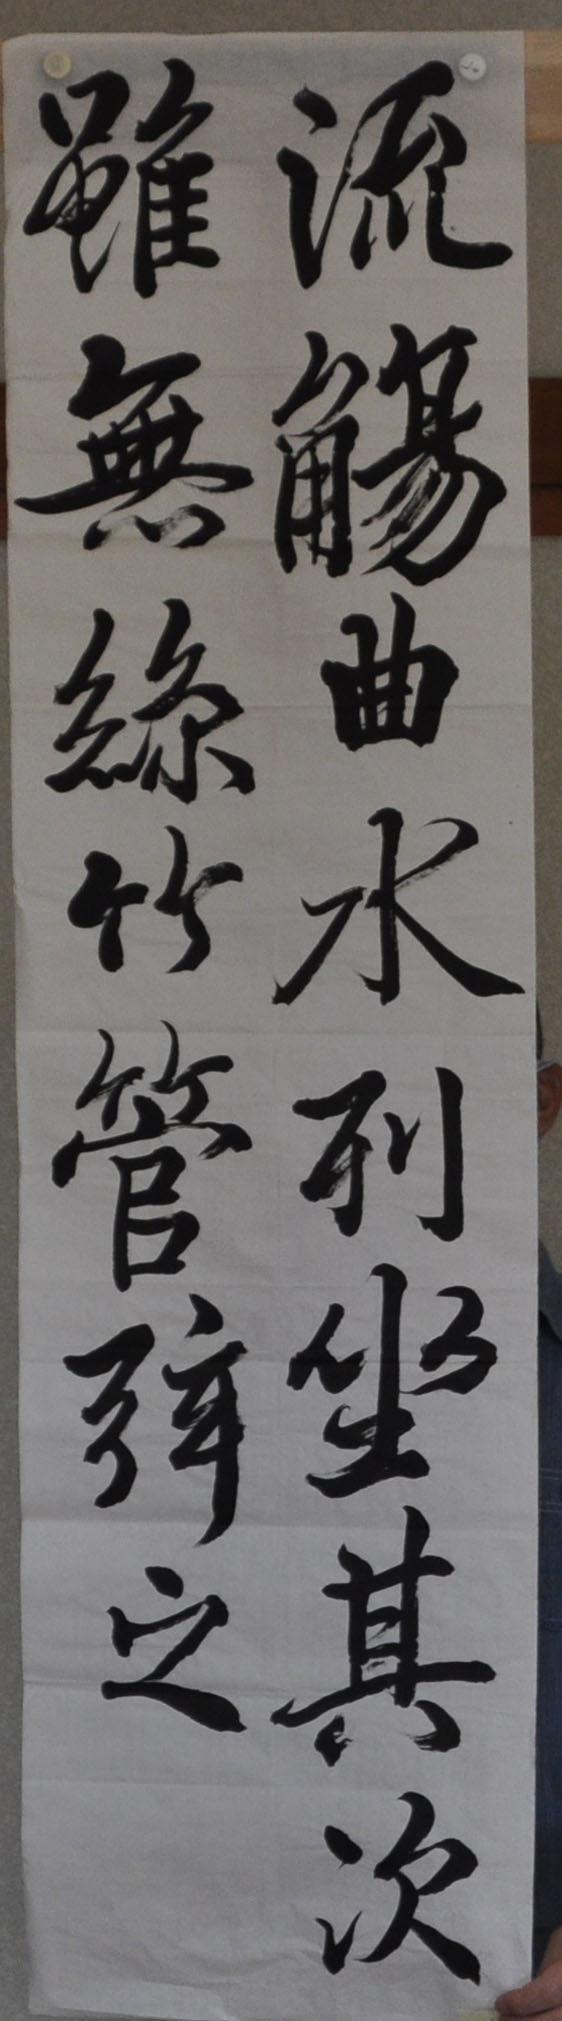 流觴曲水列坐其次
雖無絲竹管弦之